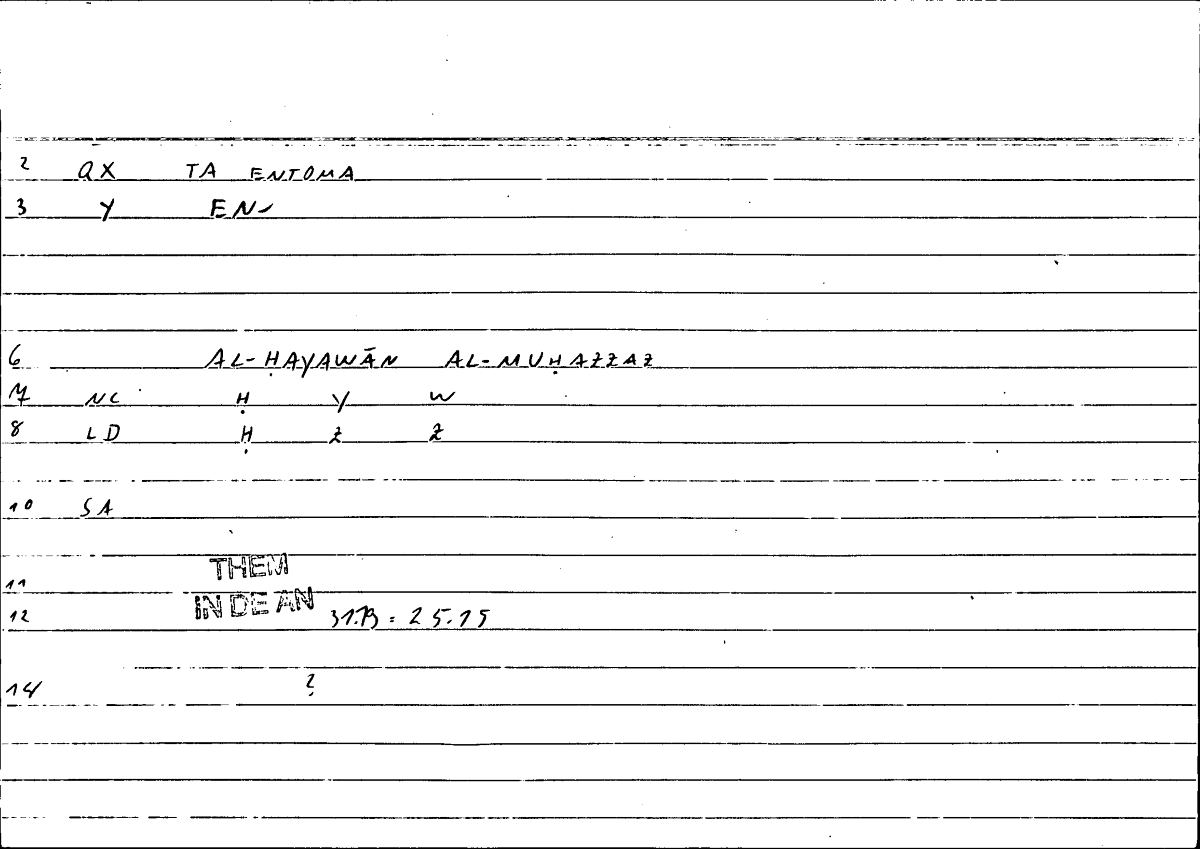 2 QX TA ENTOMA
3 Y EN
6 AL-ḤAYAWĀN AL-MUḤAZZAZ
7 NC Ḥ Y W
8 LD Ḥ Z Z
10 SA
11 THEM
12 IN DE AN 31.73 = 25.15
14 ?